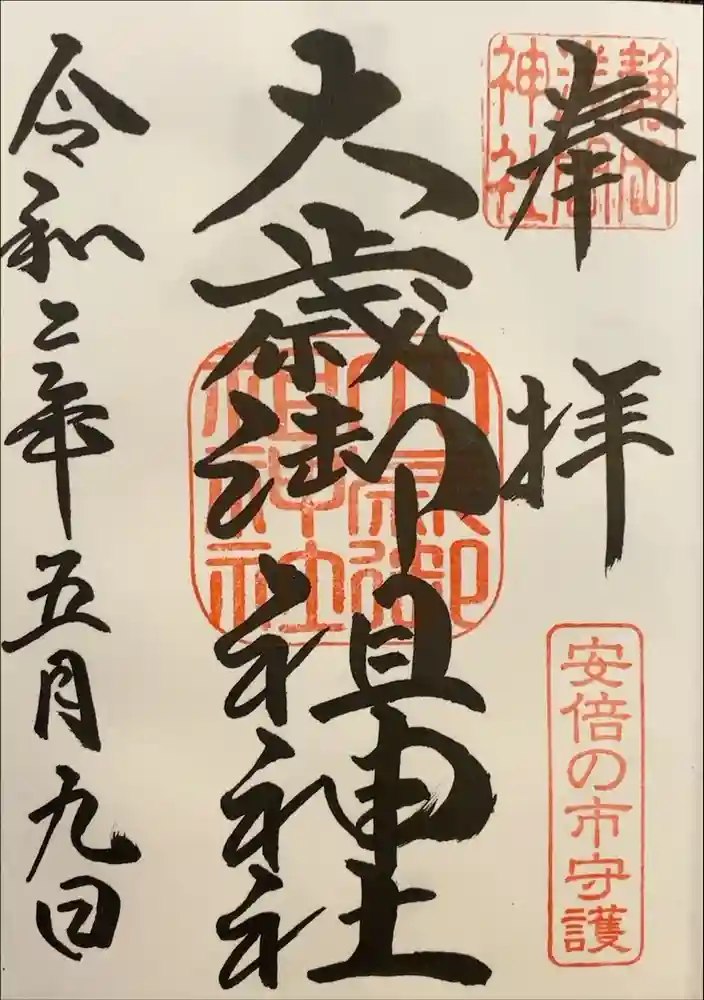 奉拝
静岡浅間神社
安倍の市守護
大歳御祖神社
大歳御祖神社
令和二年五月九日